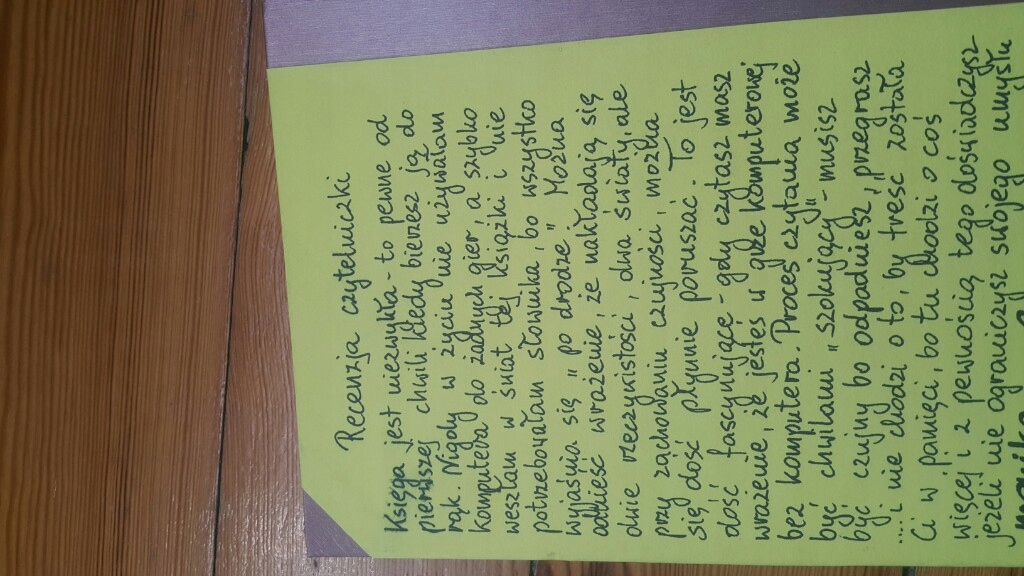 Recenzja czytelniczki
Księga jest niezwykła - to pewne od
pierwszej chwili kiedy bierzesz ją do
rąk. Nigdy w życiu nie używałam
komputera do żadnych gier, a szybko
weszłam w świat tej książki i nie
potrzebowałam słownika, bo wszystko
wyjaśnia się „po drodze". Można
odnieść wrażenie, że nakładają się
dwie rzeczywistości, dwa światy, ale
przy zachowaniu czujności, można
się dość płynnie poruszać. To jest
dość fascynujące - gdy czytasz masz
wrażenie, że jesteś w grze komputerowej
bez komputera. Proces czytania może
być chwilami „szokujący" - musisz
być czujny bo odpadniesz, przegrasz
....i nie chodzi o to, by treść została
Ci w pamięci, bo tu chodzi o coś
więcej i z pewnością tego doświadczysz
jeżeli nie ograniczysz swojego umysłu